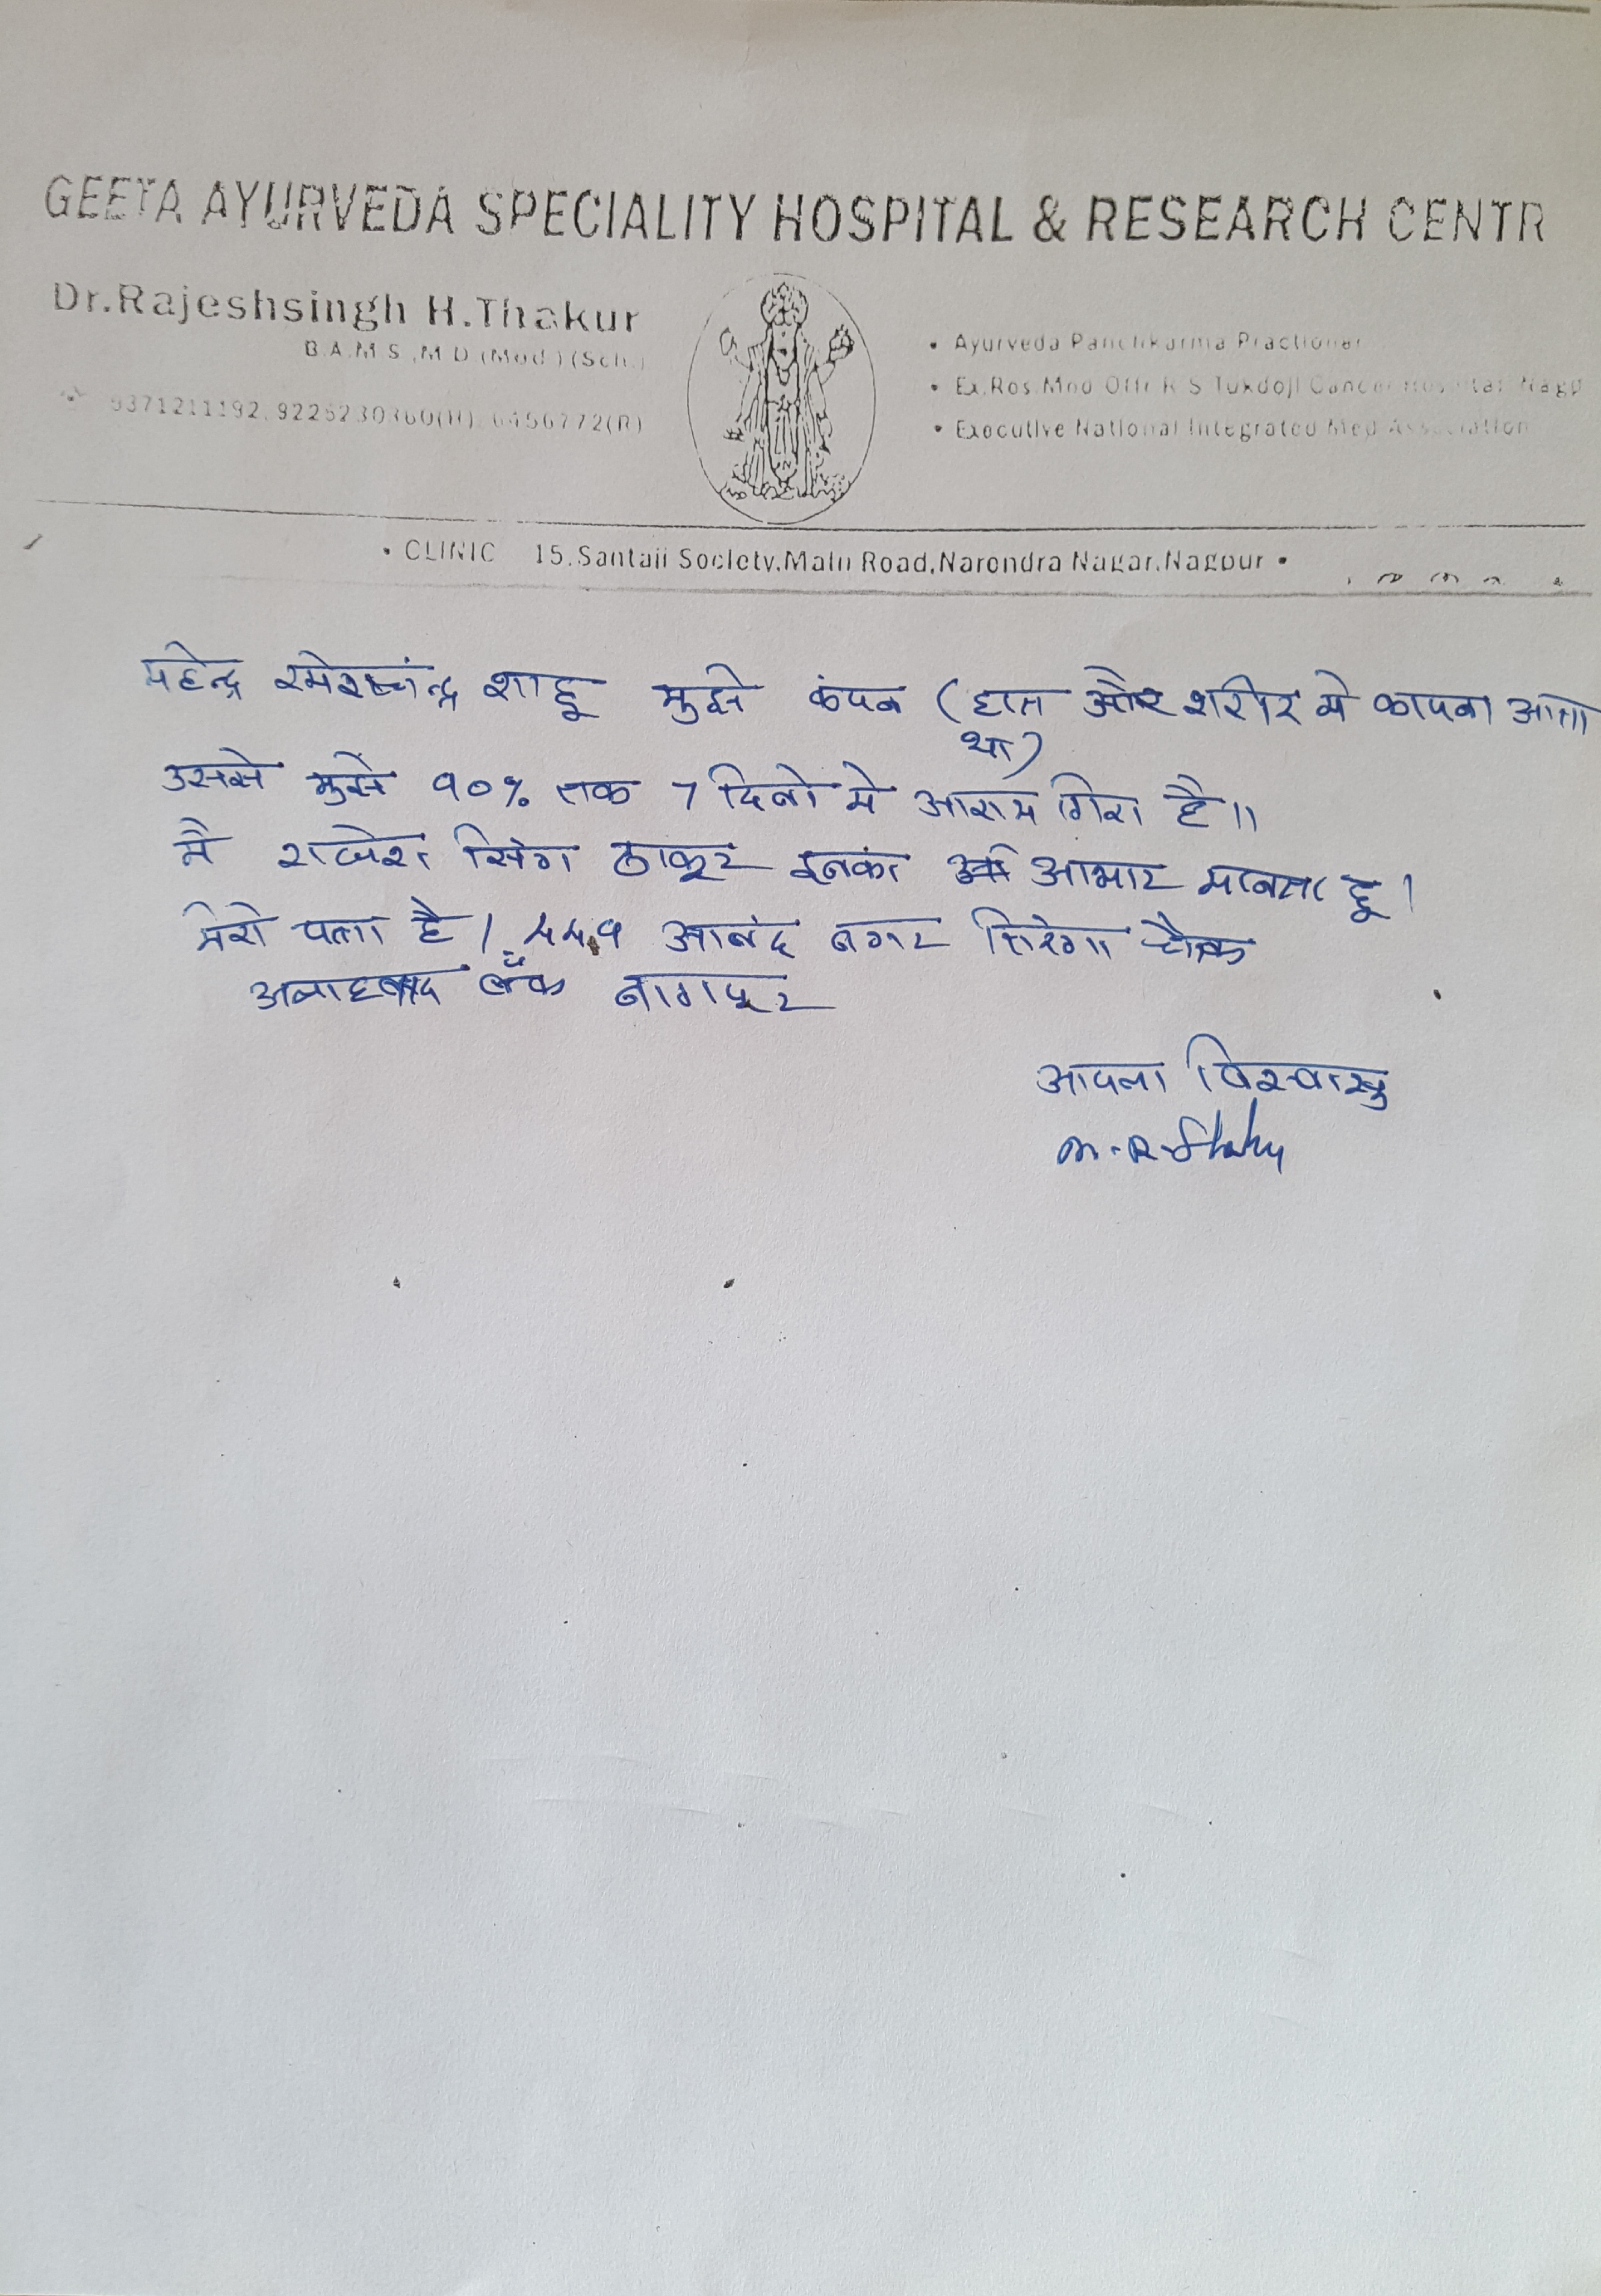 GEETA AYURVEDA SPECIALITY HOSPITAL & RESEARCH CENTR
Dr.Rajeshsingh H.Thakur
B.A.M.S.,M.D.(Med.)(Sch.)
9371211192, 9226230360(H), 6456772(R)
• Ayurveda Panchkarma Practioner
• Ex.Res.Med Offr R S Tukdoji Cancer Hospital Nagp
• Executive National Integrated Med Association
• CLINIC 15,Santaji Society,Main Road,Narendra Nagar,Nagpur •
महेन्द्र रमेशचंन्द्र शाहू मुझे कंपन (हात और शरीर मे कापना आता
था)
उससे मुझे 90% तक 7 दिनो मे आराम मिला है।।
मै राजेश सिंग ठाकूर इनका आभार मानता हू।
मेरा पता है। आनंद नगर तिरंगा चौक
अलाहबाद बैंक नागपूर
आपला विश्वासु
M.R.Shahu